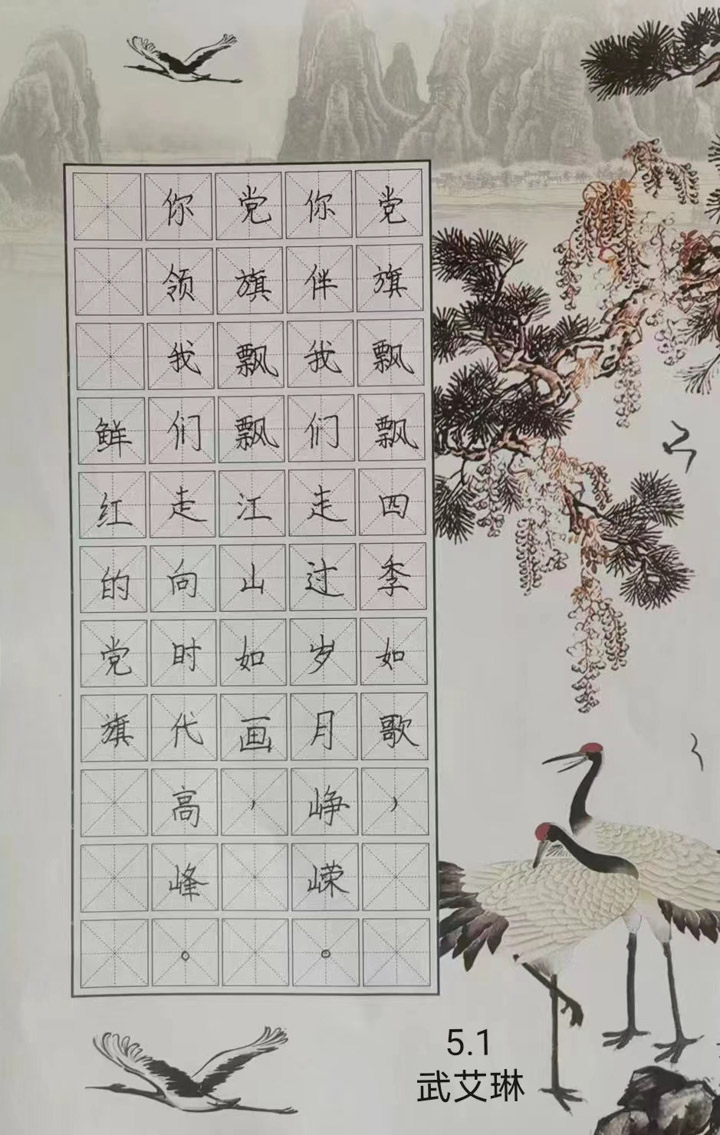 党旗飘飘四季如歌，
你伴我们走过岁月峥嵘。
党旗飘飘江山如画，
你领我们走向时代高峰。
鲜红的党旗
5.1
武艾琳